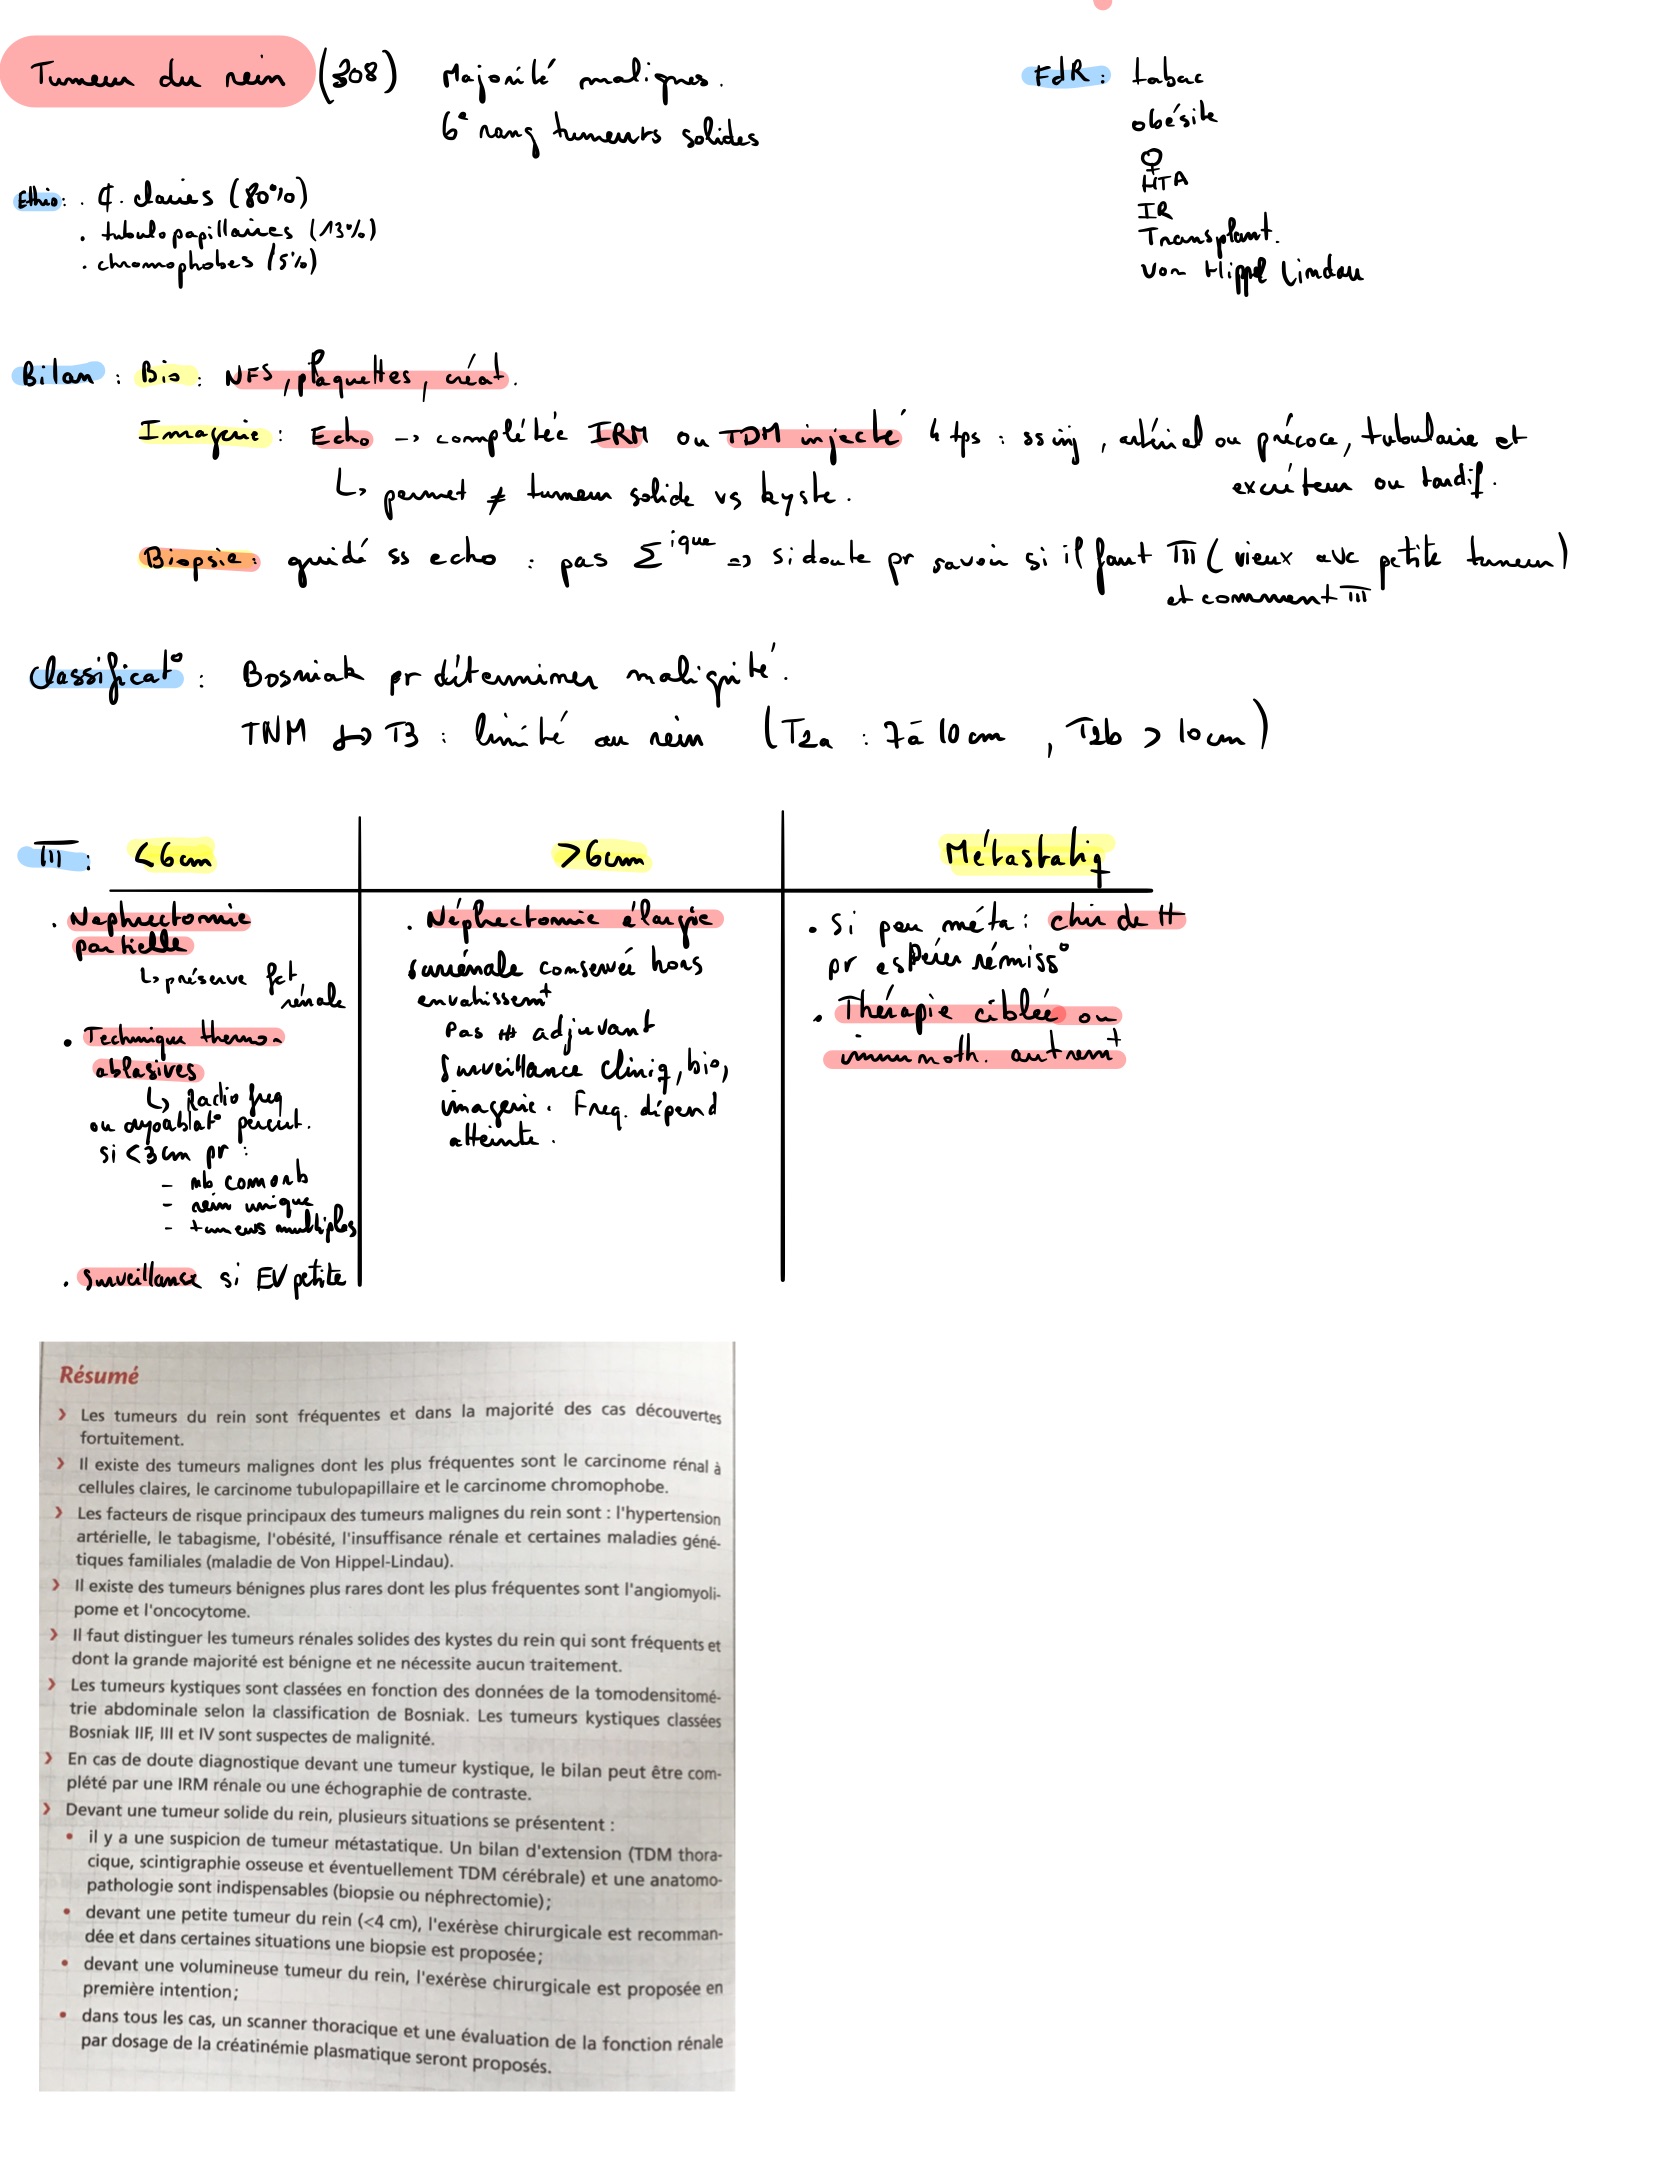 Tumeur du rein (308) Majorité malignes.
6e rang tumeurs solides
FdR : tabac
obésite
♀
HTA
IR
Transplant.
Von Hippel Lindau
Ethio : . ₵. claires (80%)
. tubulopapillaires (13%)
. chromophobes (5%)
Bilan : Bio : NFS, plaquettes, créat.
Imagerie : Echo -> complétée IRM ou TDM injecté 4 tps : ss inj, artériel ou précoce, tubulaire et
excréteur ou tardif.
↳ permet ≠ tumeur solide vs kyste.
Biopsie : guidé ss echo : pas Σique => si doute pr savoir si il faut TTT (vieux avc petite tumeur)
et comment TTT
Classificat° : Bosniak pr déterminer malignité.
TNM T3 : limité au rein (T2a : 7 à 10 cm , T2b > 10cm)
TTT : <6cm
>6cm
Métastatiq
. Nephrectomie
partielle
↳ préserve fct
rénale
• Technique thermo-
ablasives
↳ Radio freq
ou cryoablat° percut.
si <3cm pr :
- nb comorb
- rein unique
- tumeurs multiples
. Surveillance si EV petite
. Néphrectomie élargie
surrénale conservée hors
envahissemt
Pas ttt adjuvant
Surveillance cliniq, bio,
imagerie. Freq. dépend
atteinte.
• Si peu méta : chir de
pr espérer rémiss°
. Thérapie ciblée ou
immunoth. autremt
Résumé
› Les tumeurs du rein sont fréquentes et dans la majorité des cas découvertes
fortuitement.
› Il existe des tumeurs malignes dont les plus fréquentes sont le carcinome rénal à
cellules claires, le carcinome tubulopapillaire et le carcinome chromophobe.
› Les facteurs de risque principaux des tumeurs malignes du rein sont : l'hypertension
artérielle, le tabagisme, l'obésité, l'insuffisance rénale et certaines maladies géné-
tiques familiales (maladie de Von Hippel-Lindau).
› Il existe des tumeurs bénignes plus rares dont les plus fréquentes sont l'angiomyoli-
pome et l'oncocytome.
› Il faut distinguer les tumeurs rénales solides des kystes du rein qui sont fréquents et
dont la grande majorité est bénigne et ne nécessite aucun traitement.
› Les tumeurs kystiques sont classées en fonction des données de la tomodensitomé-
trie abdominale selon la classification de Bosniak. Les tumeurs kystiques classées
Bosniak IIF, III et IV sont suspectes de malignité.
› En cas de doute diagnostique devant une tumeur kystique, le bilan peut être com-
plété par une IRM rénale ou une échographie de contraste.
› Devant une tumeur solide du rein, plusieurs situations se présentent :
• il y a une suspicion de tumeur métastatique. Un bilan d'extension (TDM thora-
cique, scintigraphie osseuse et éventuellement TDM cérébrale) et une anatomo-
pathologie sont indispensables (biopsie ou néphrectomie) ;
• devant une petite tumeur du rein (<4 cm), l'exérèse chirurgicale est recomman-
dée et dans certaines situations une biopsie est proposée ;
• devant une volumineuse tumeur du rein, l'exérèse chirurgicale est proposée en
première intention ;
• dans tous les cas, un scanner thoracique et une évaluation de la fonction rénale
par dosage de la créatinémie plasmatique seront proposés.